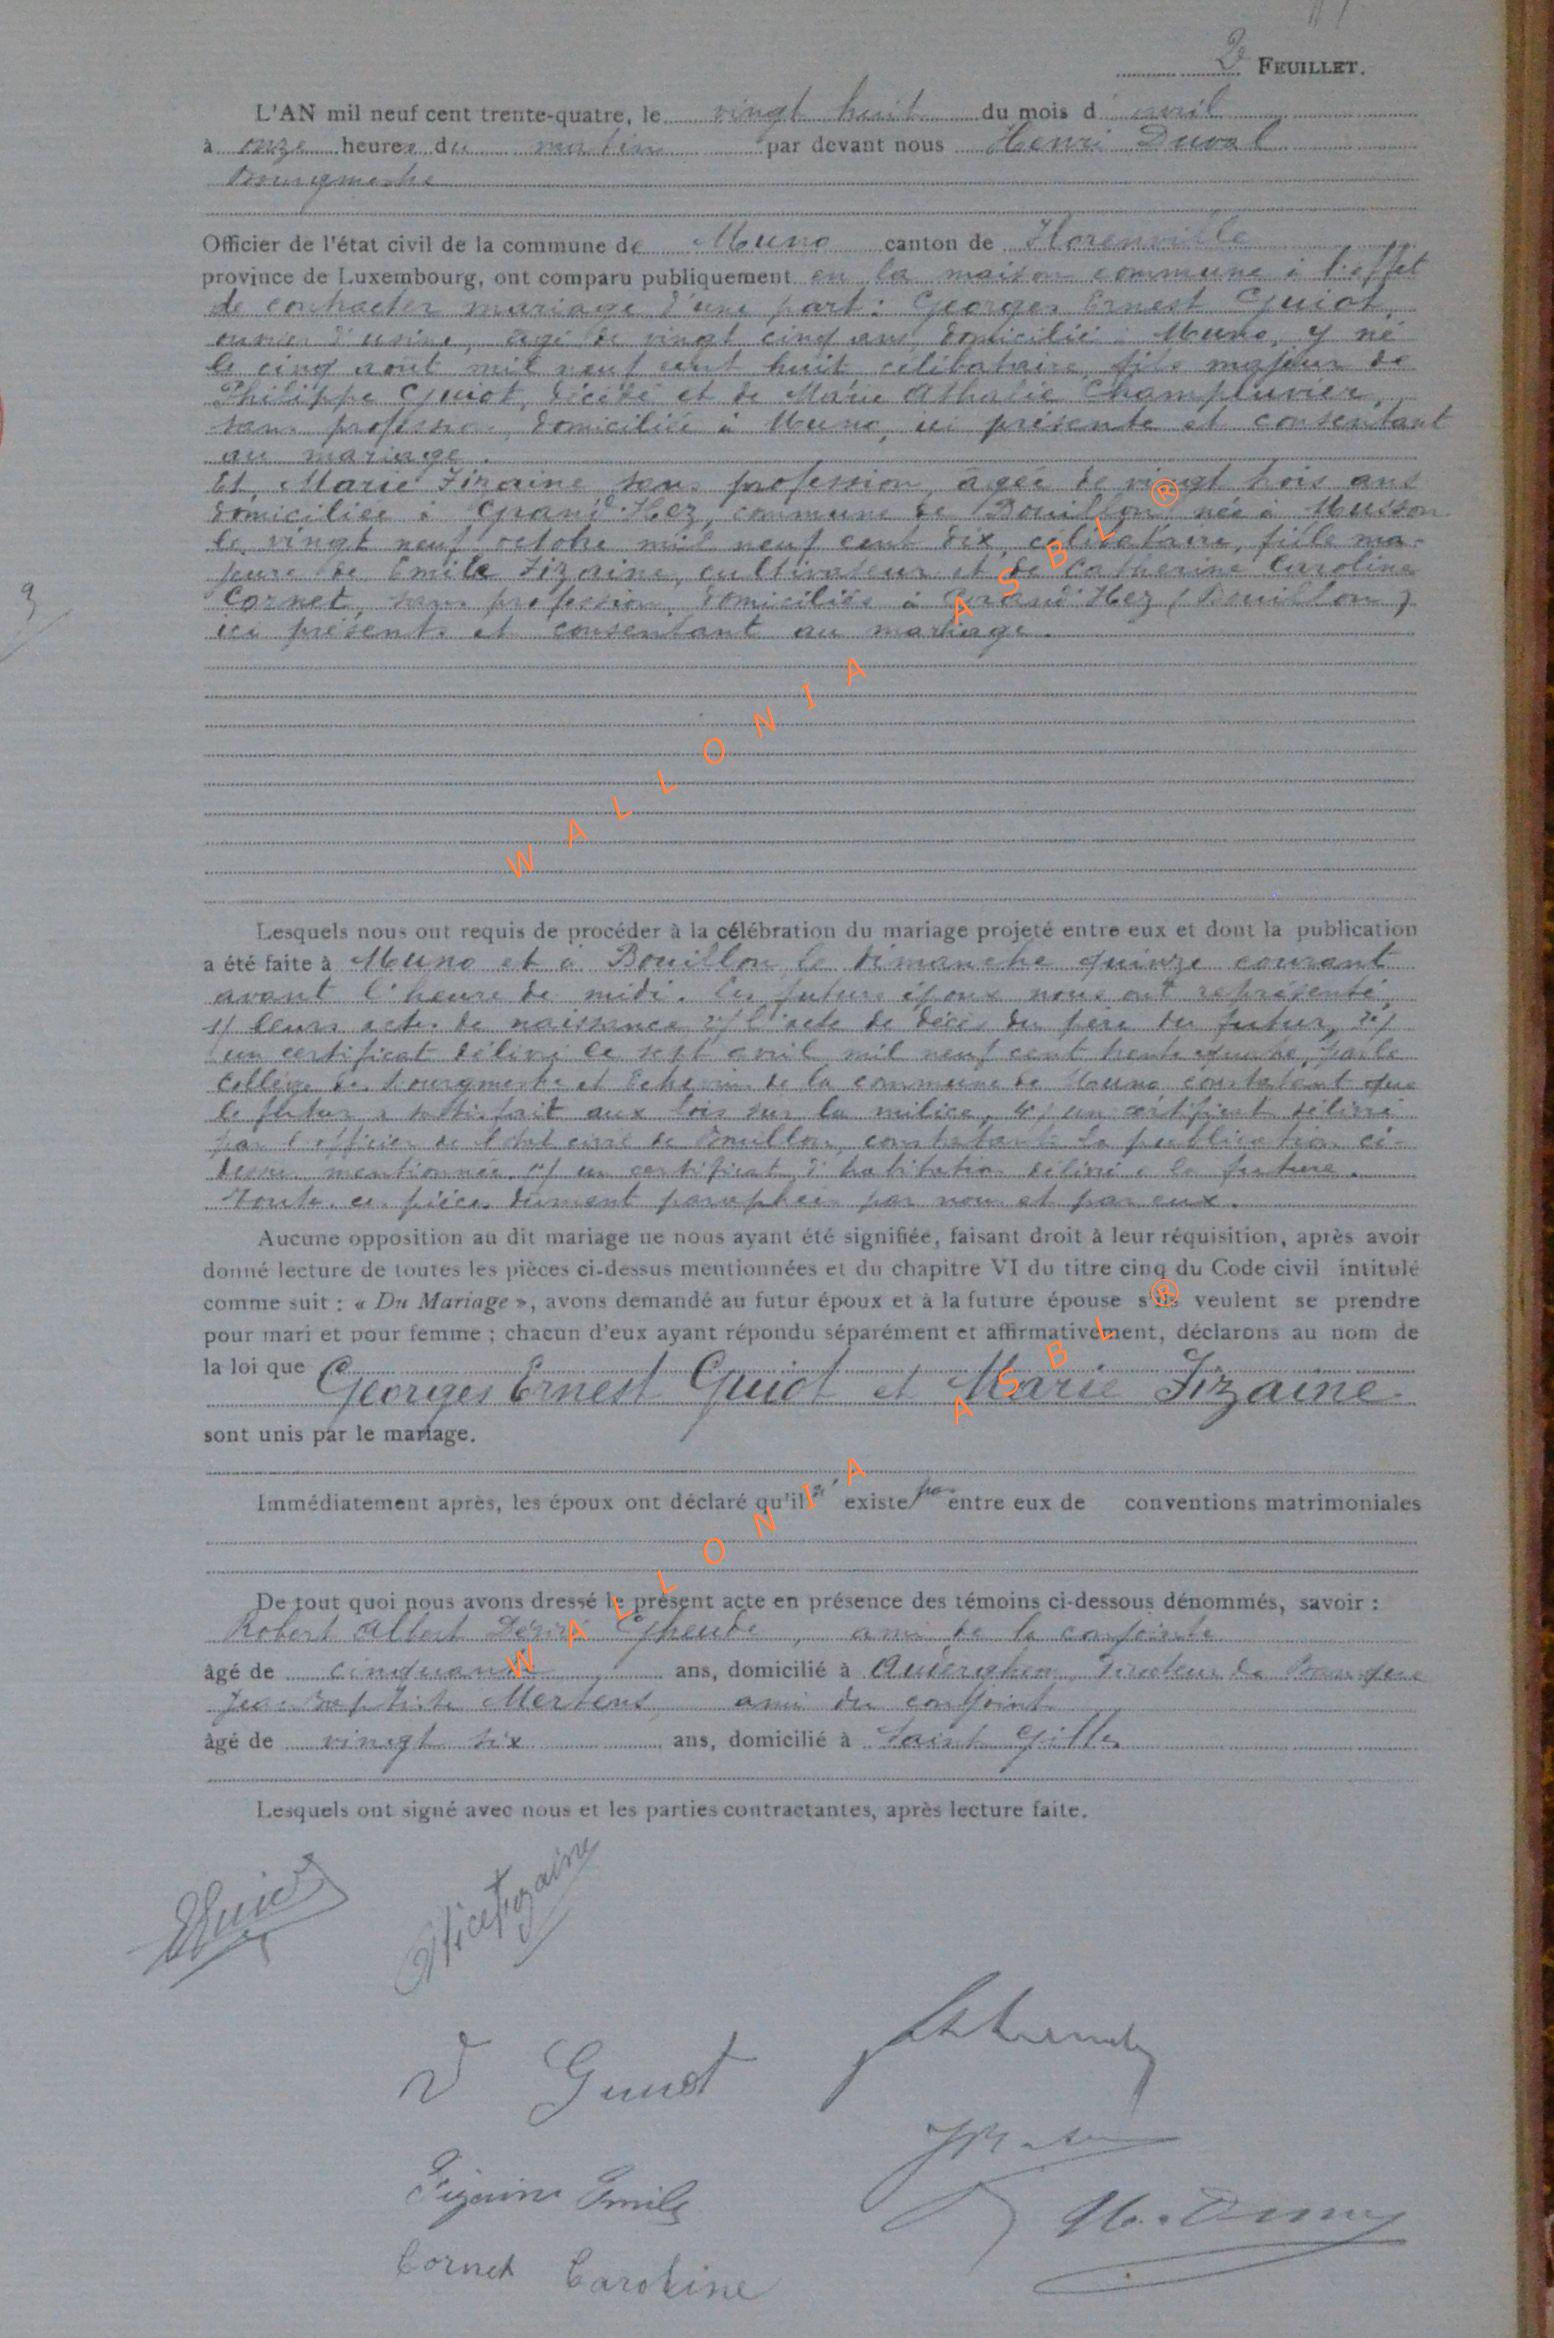 2e FEUILLET.
L'AN mil neuf cent trente-quatre, le vingt huit du mois d'avril
à onze heures du matin par devant nous Henri Duval
Bourgmestre
Officier de l'état civil de la commune de Muno canton de Florenville
province de Luxembourg, ont comparu publiquement en la maison commune à l'effet
de contracter mariage d'une part : Georges Ernest Guiot,
ouvrier d'usine, âgé de vingt cinq ans, domicilié à Muno, y né
le cinq août mil neuf cent huit célibataire, fils majeur de
Philippe Guiot, décédé et de Marie Athalie Champluvier,
sans profession, domiciliée à Muno, ici présente et consentant
au mariage.
Et Marie Fizaine sans profession, âgée de vingt trois ans
domiciliée à Grand'Hez, commune de Bouillon née à Musson
le vingt neuf octobre mil neuf cent dix, célibataire, fille ma-
jeure de Emile Fizaine, cultivateur et de Catherine Caroline
Cornet, sans profession, domiciliés à Grand'Hez (Bouillon)
ici présents et consentant au mariage.
Lesquels nous ont requis de procéder à la célébration du mariage projeté entre eux et dont la publication
a été faite à Muno et à Bouillon le dimanche quinze courant
avant l'heure de midi. Les futurs époux nous ont représenté
1/ leurs actes de naissance 2/ l'acte de décès du père du futur, 3/
un certificat délivré le sept avril mil neuf cent trente quatre, par le
Collège des bourgmestre et Echevins de la commune de Muno constatant que
le futur a satisfait aux lois sur la milice, 4/ un certificat délivré
par l'officier de l'état civil de Bouillon, constatant la publication ci-
dessus mentionnée 5/ un certificat d'habitation délivré à la future.
Toutes ces pièces dûment paraphées par nous et par eux.
Aucune opposition au dit mariage ne nous ayant été signifiée, faisant droit à leur réquisition, après avoir
donné lecture de toutes les pièces ci-dessus mentionnées et du chapitre VI du titre cinq du Code civil intitulé
comme suit : « Du Mariage », avons demandé au futur époux et à la future épouse s'ils veulent se prendre
pour mari et pour femme ; chacun d'eux ayant répondu séparément et affirmativement, déclarons au nom de
la loi que
Georges Ernest Guiot et Marie Fizaine
sont unis par le mariage.
Immédiatement après, les époux ont déclaré qu'il n' existe pas entre eux de conventions matrimoniales
De tout quoi nous avons dressé le présent acte en présence des témoins ci-dessous dénommés, savoir :
Robert Albert Désiré Gheude, ami de la conjointe
âgé de cinquante ans, domicilié à Auderghem, Directeur de Banque
Jean Baptiste Mertens, ami du conjoint
âgé de vingt six ans, domicilié à Saint Gilles
Lesquels ont signé avec nous et les parties contractantes, après lecture faite.
EGuiot
Alice Fizaine
V Guiot
Fizaine Emile
Cornet Caroline
WALLONIA ASBL ®
WALLONIA ASBL ®